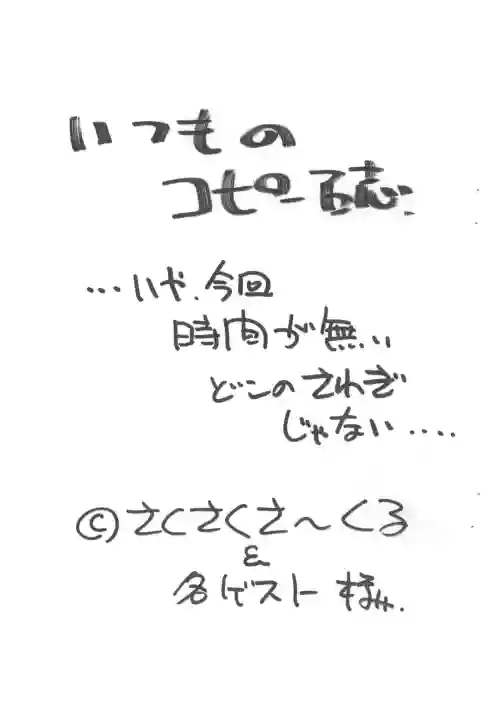 いつもの
コピー誌
…いや、今回
時間が無い
どこのさわぎ
じゃない‥‥
©さくさくさ〜くる
&
各ゲスト様.